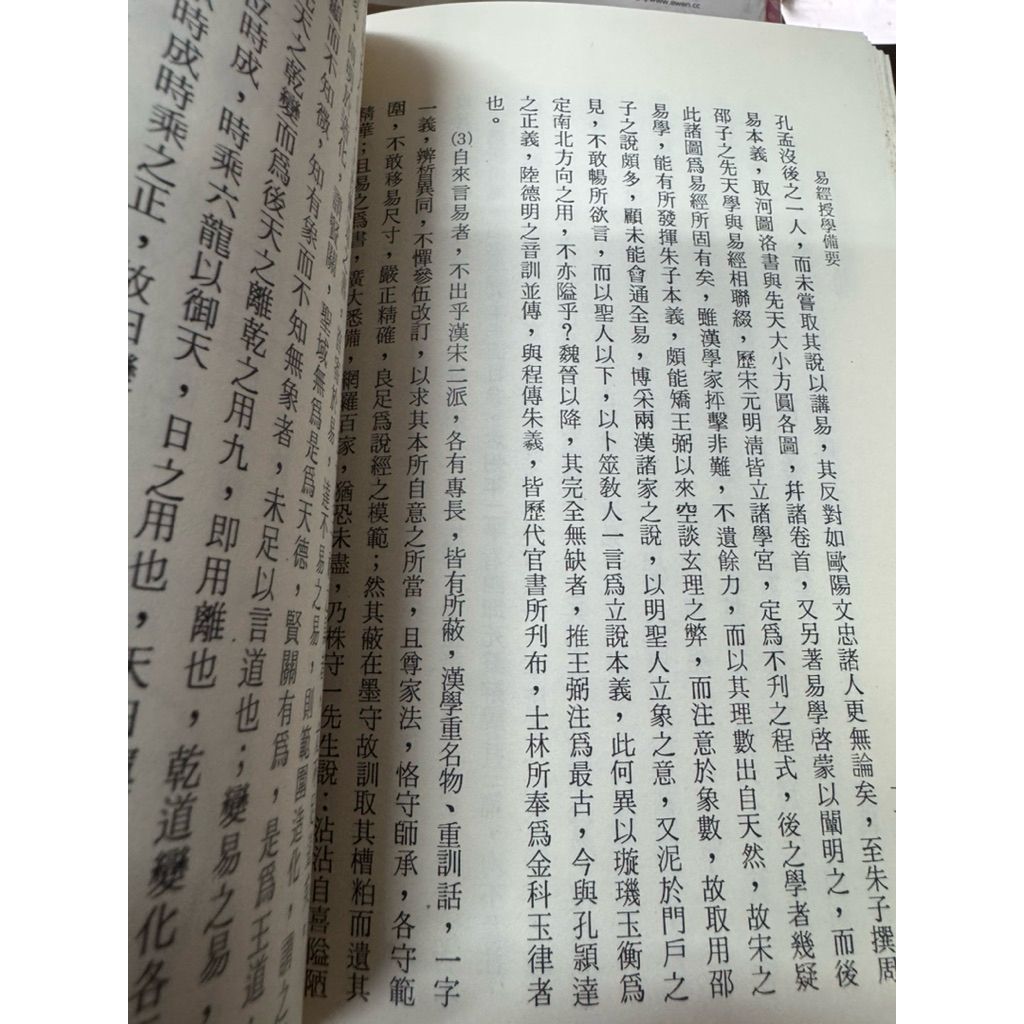 www.ewen.cc
易經授學備要
孔孟沒後之一人，而未嘗取其說以講易，其反對如歐陽文忠諸人更無論矣，至朱子撰周
易本義，取河圖洛書與先天大小方圓各圖，幷諸卷首，又另著易學啓蒙以闡明之，而後
邵子之先天學與易經相聯綴，歷宋元明淸皆立諸學宮，定爲不刋之程式，後之學者幾疑
此諸圖爲易經所固有矣，雖漢學家抨擊非難，不遺餘力，而以其理數出自天然，故宋之
易學，能有所發揮朱子本義，頗能矯王弼以來空談玄理之弊，而注意於象數，故取用邵
子之說頗多，顧未能會通全易，博采兩漢諸家之說，以明聖人立象之意，又泥於門戶之
見，不敢暢所欲言，而以聖人以下，以卜筮敎人一言爲立說本義，此何異以璇璣玉衡爲
定南北方向之用，不亦隘乎？魏晉以降，其完全無缺者，推王弼注爲最古，今與孔頴達
之正義，陸德明之音訓並傳，與程傳朱義，皆歷代官書所刋布，士林所奉爲金科玉律者
也。
⑶自來言易者，不出乎漢宋二派，各有專長，皆有所蔽，漢學重名物、重訓話，一字
一義，辨析異同，不憚參伍改訂，以求其本所自意之所當，且尊家法，恪守師承，各守範
圍，不敢移易尺寸，嚴正精確，良足爲說經之模範；然其蔽在墨守故訓取其糟粕而遺其
精華；且易之爲書，廣大悉備，網羅百家，猶恐未盡，乃株守一先生說：沾沾自喜隘陋
聖域無爲是爲天德，賢關有爲，是爲王道
而不知微，知有象而不知無象者，未足以言道也；變易之易，
天之乾變而爲後天之離乾之用九，即用離也，乾道變化各
位時成，時乘六龍以御天，日之用也，天
時成時乘之正，故曰